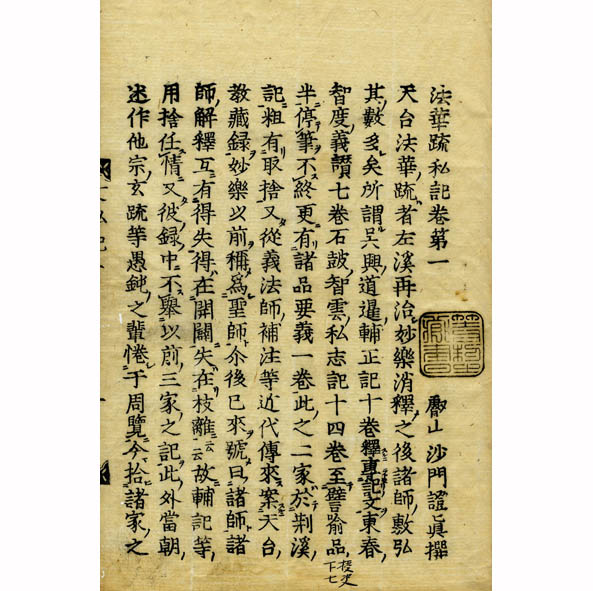 法華疏私記卷第一　　叡山沙門證眞撰
天台法華疏者左溪再治妙樂消釋之後諸師敷弘
其數多矣所謂吳興道暹輔正記十卷釋東春
智度義讚七卷石皷智雲私志記十四卷至譬喻品
半停筆不終更有諸品要義一卷此之二家於荆溪
記粗有取捨又從義法師補注等近代傳來案天台
教藏録妙樂以前稱爲聖師尒後已來號曰諸師諸
師解釋互有得失得在開闢失在枝離云云故輔記等
用捨任情又彼録中不舉以前三家之記此外當朝
述作他宗玄疏等愚鈍之輩惓于周覽今拾諸家之